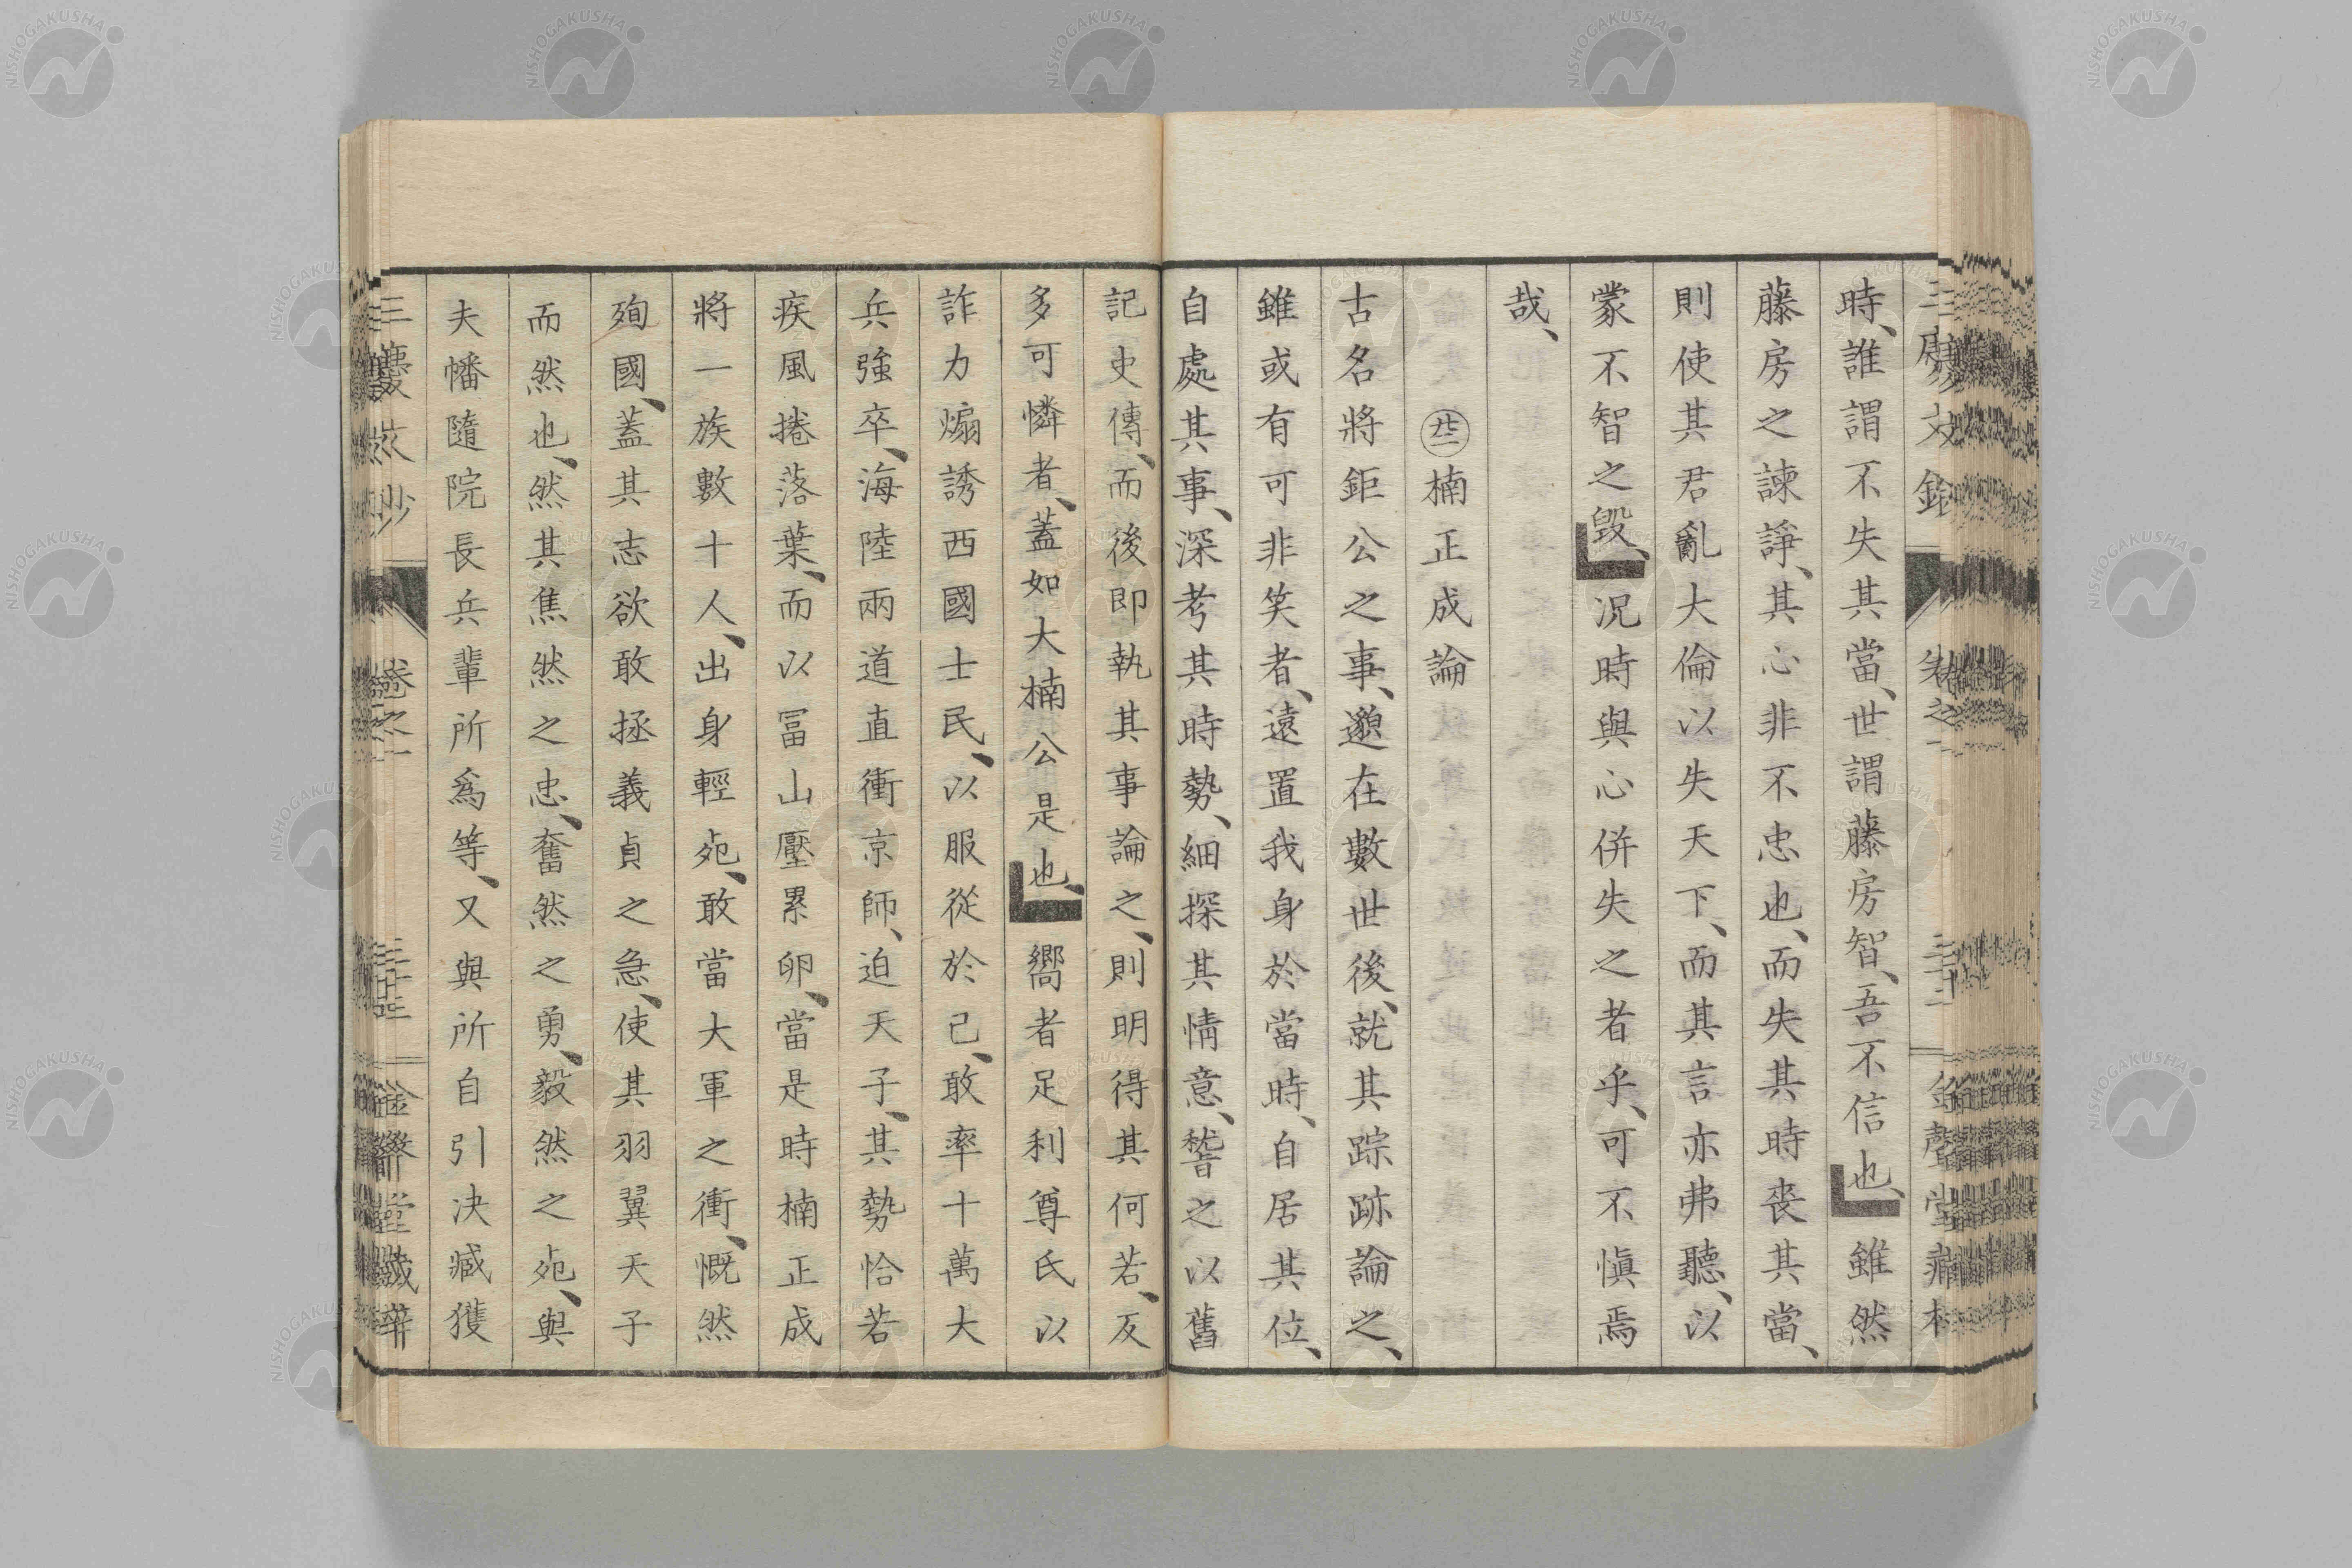 時、誰謂不失其當、世謂藤房智、吾不信也、雖然
藤房之諫諍、其心非不忠也、而失其時喪其當、
則使其君亂大倫以失天下、而其言亦弗聽、以
蒙不智之毀、況時與心併失之者乎、可不愼焉
哉、
楠正成論
古名將鉅公之事、邈在數世後、就其踪跡論之、
雖或有可非笑者、遠置我身於當時、自居其位、
自處其事、深考其時勢、細探其情意、稽之以舊
記史傳、而後即執其事論之、則明得其何若、反
多可憐者、蓋如大楠公是也、嚮者足利尊氏以
詐力煽誘西國士民、以服從於己、敢率十萬大
兵強卒、海陸兩道直衝京師、迫天子、其勢恰若
疾風捲落葉、而以冨山壓累卵、當是時楠正成
將一族數十人、出身輕死、敢當大軍之衝、慨然
殉國、蓋其志欲敢拯義貞之急、使其羽翼天子
而然也、然其焦然之忠、奮然之勇、毅然之死、與
夫幡隨院長兵輩所爲等、又與所自引決臧獲
NISHOGAKUSHA